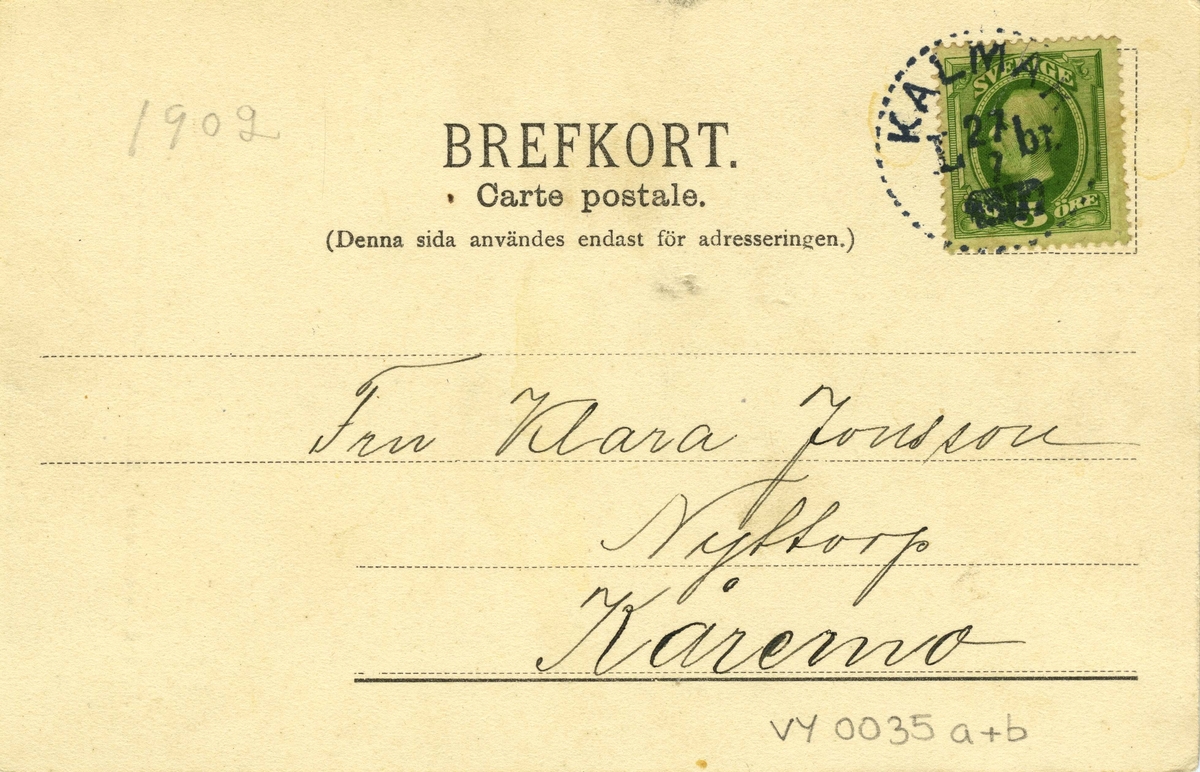 1902
BREFKORT.
Carte postale.
(Denna sida användes endast för adresseringen.)
KALMAR
SVERIGE
27
br.
7
5 ÖRE
Fru Klara Jonsson
Nyttorp
Kåremo
VY 0035 a+b